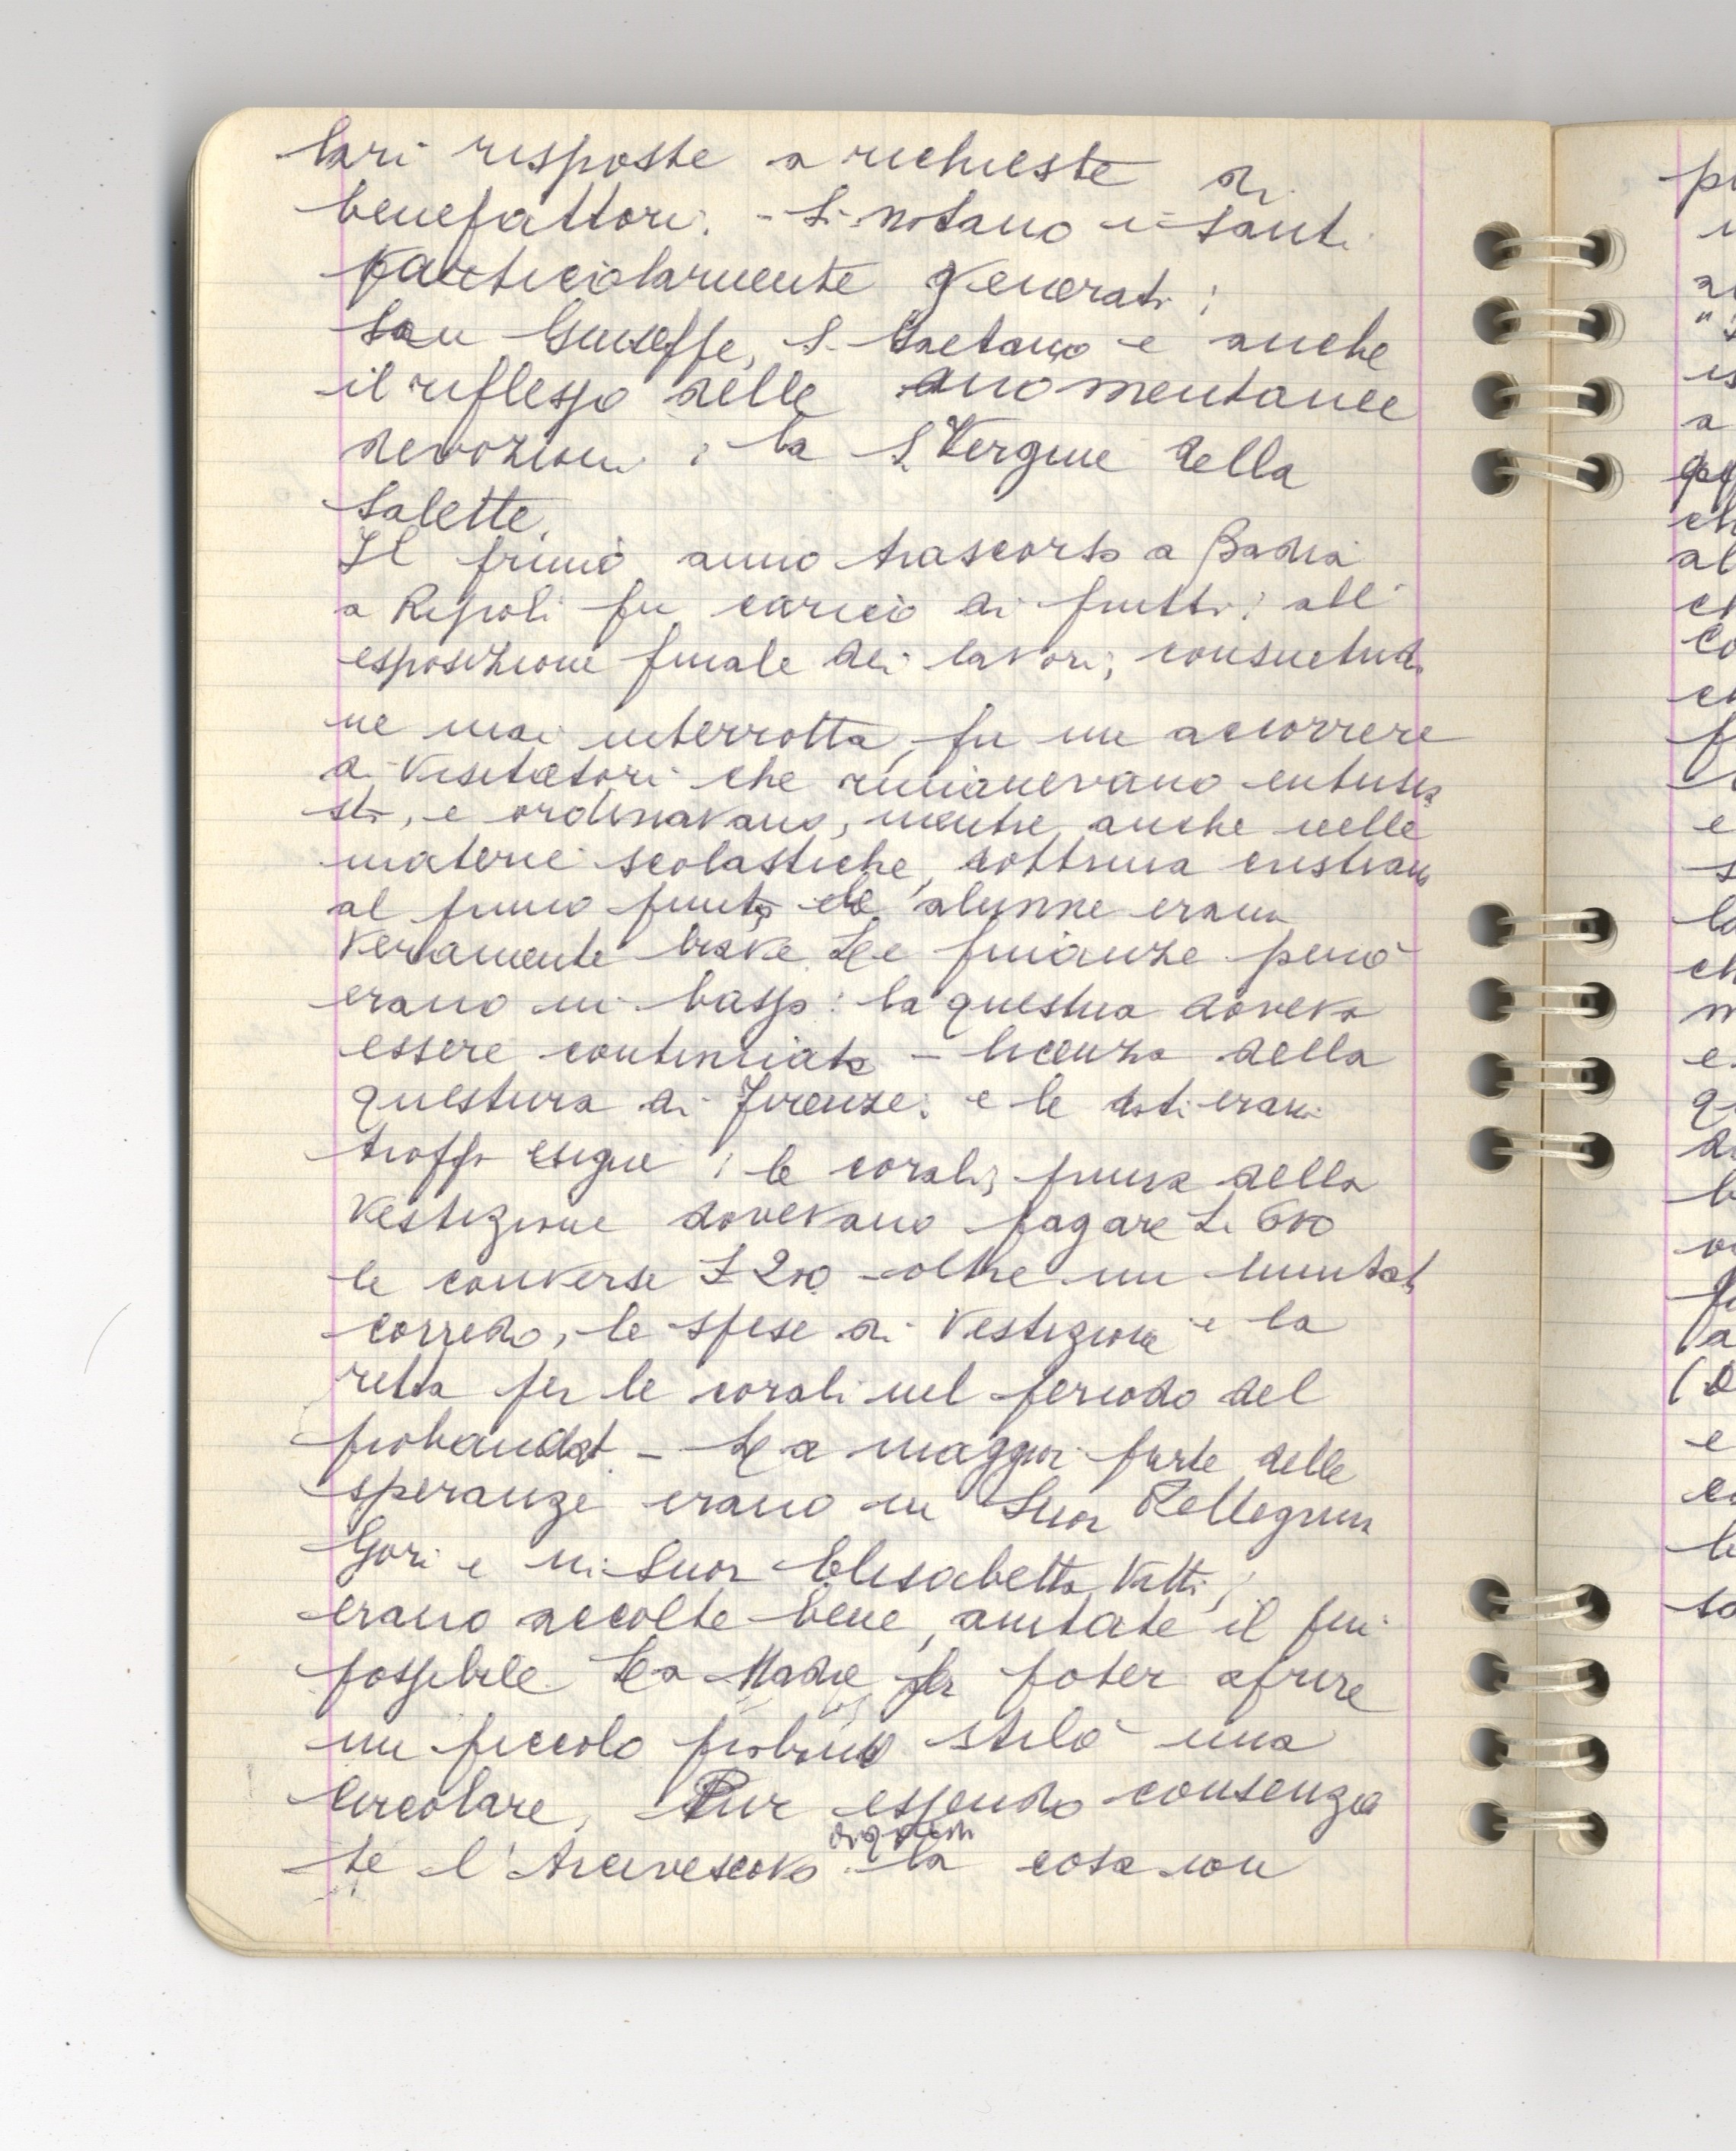 lari risposte a richieste di
benefattori. - Si notano i santi
particolarmente venerati:
San Giuseppe, S. Gaetano e anche
il riflesso delle momentanee
devozioni: la S. Vergine della
Salette.
Il primo anno trascorso a Badia
a Ripoli fu carico di frutti: all'
esposizione finale dei lavori, consuetudi
ne mai interrotta, fu un accorrere
di visitatori che rimanevano entusia
sti, e ordinavano, mentre anche nelle
materie scolastiche, dottrina cristiana
al primo punto le alunne erano
veramente brave. Le finanze però
erano in basso: la questua doveva
essere continuata - licenza della
questura di Firenze: e le doti erano
troppo esigue: le corali, prima della
Vestizione dovevano pagare L. 600
le converse £ 200 - oltre un limitato
corredo, le spese di Vestizione e la
retta per le corali nel periodo del
probandato. - La maggior parte delle
speranze erano in Suor Pellegrina
Gori e in Suor Elisabetta Vatti;
erano accolte bene, aiutate il più
possibile. La Madre per poter aprire
un piccolo probando stilò una
circolare. Pur essendo consenzien
te l'Arcivescovo la cosa non